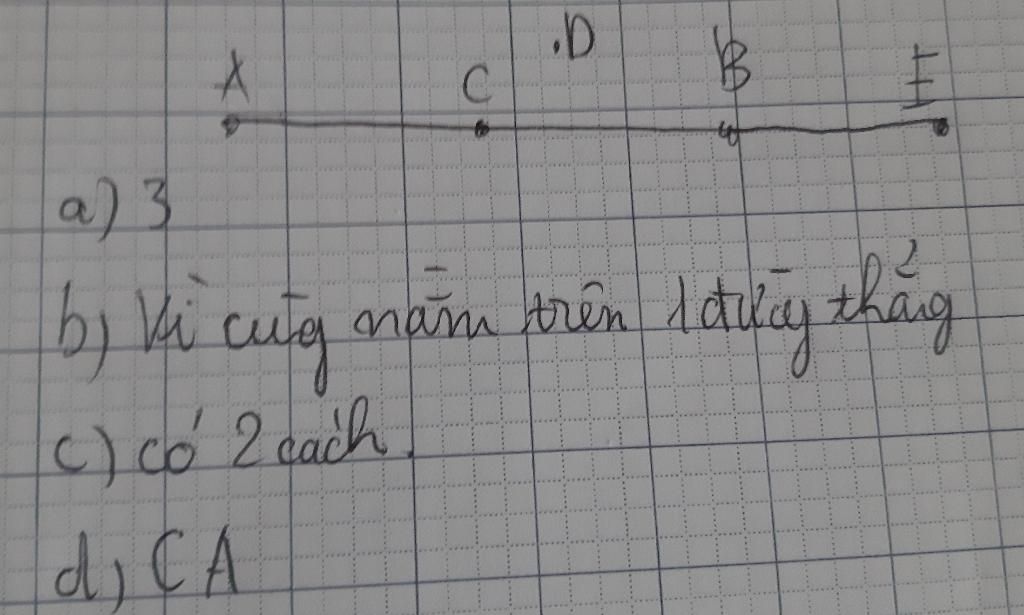 .D
A C B I
a) 3
b) Vì cùg nằm trên 1 đườg thẳg
c) có 2 cách.
d) CA